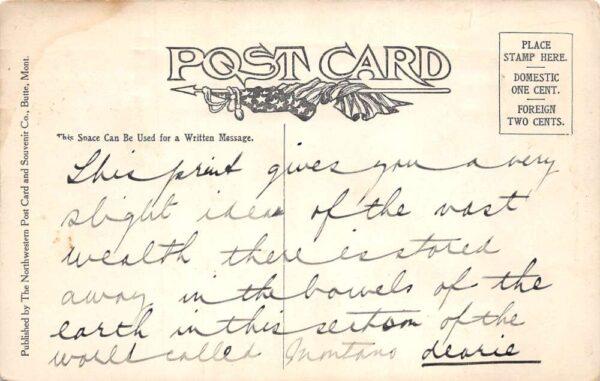 POST CARD
PLACE
STAMP HERE.
DOMESTIC
ONE CENT.
FOREIGN
TWO CENTS.
This Space Can Be Used for a Written Message.
This print gives you a very
slight idea of the vast
wealth there is stored
away in the bowels of the
earth in this section of the
world called Montano dearie
Published by The Northwestern Post Card and Souvenir Co., Butte, Mont.